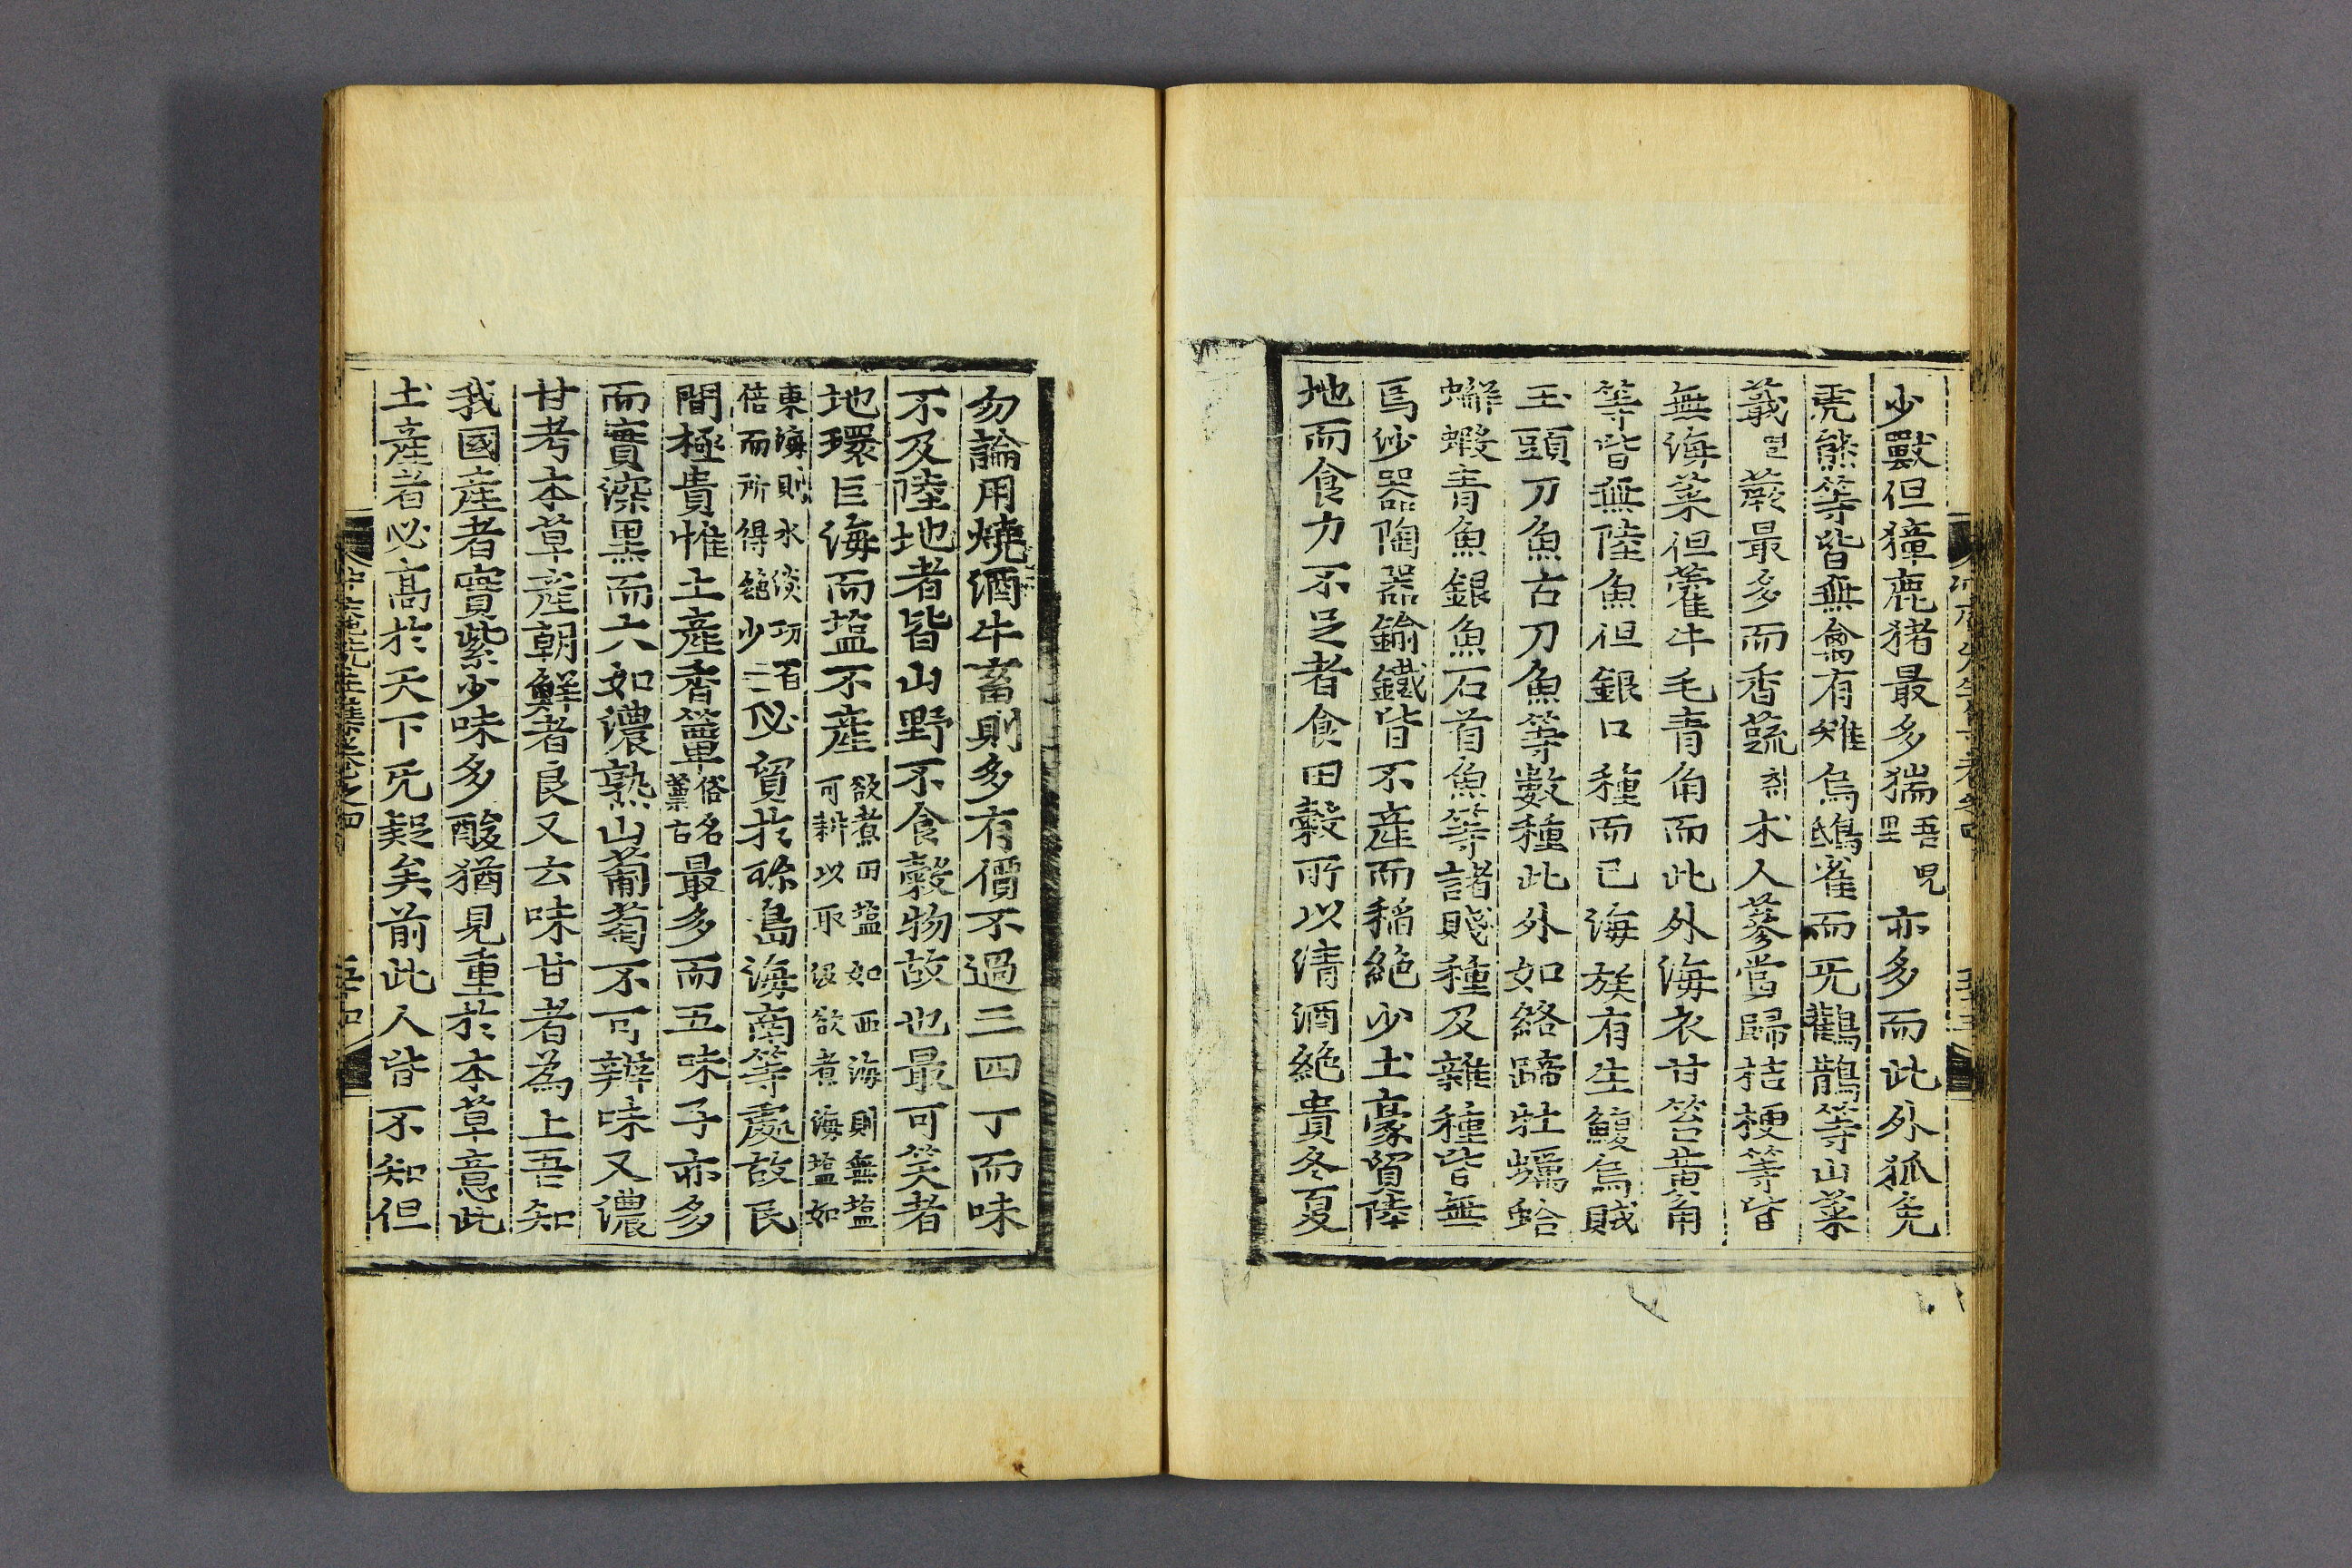 少獸但獐鹿猪最多猯吾兒里亦多而此外狐兔
虎熊等皆無禽有雉烏鴟雀而旡鸛鵲等山菜
蕺멸蕨最多而香蔬朮人蔘當歸桔梗等皆
無海菜但藿牛毛青角而此外海衣甘笞黄角
等皆無陸魚但銀口種而已海族有生鰒烏賊
玉頭刀魚古刀魚等數種此外如絡蹄牡蠣蛤
蠏蝦青魚銀魚石首魚等諸賤種及雜種皆無
焉沙器陶器鍮鐵皆不産而稻絶少土豪貿陸
地而食力不足者食田穀所以清酒絶貴冬夏
勿論用燒酒牛畜則多有價不過三四丁而味
不及陸地者皆山野不食穀物故也最可笑者
地環巨海而塩不産欲煮田塩如西海則無塩可耕以取汲欲煮海塩如
東海則水淡功百倍而所得絶少云必貿於珎島海南等處故民
間極貴惟土産香簞俗名蔈古最多而五味子亦多
而實深黒而大如濃熟山葡萄不可辨味又濃
甘考本草産朝鮮者良又云味甘者為上吾知
我國産者實紫少味多酸猶見重於本草意此
土産者必高於天下旡疑矣前此人皆不知但